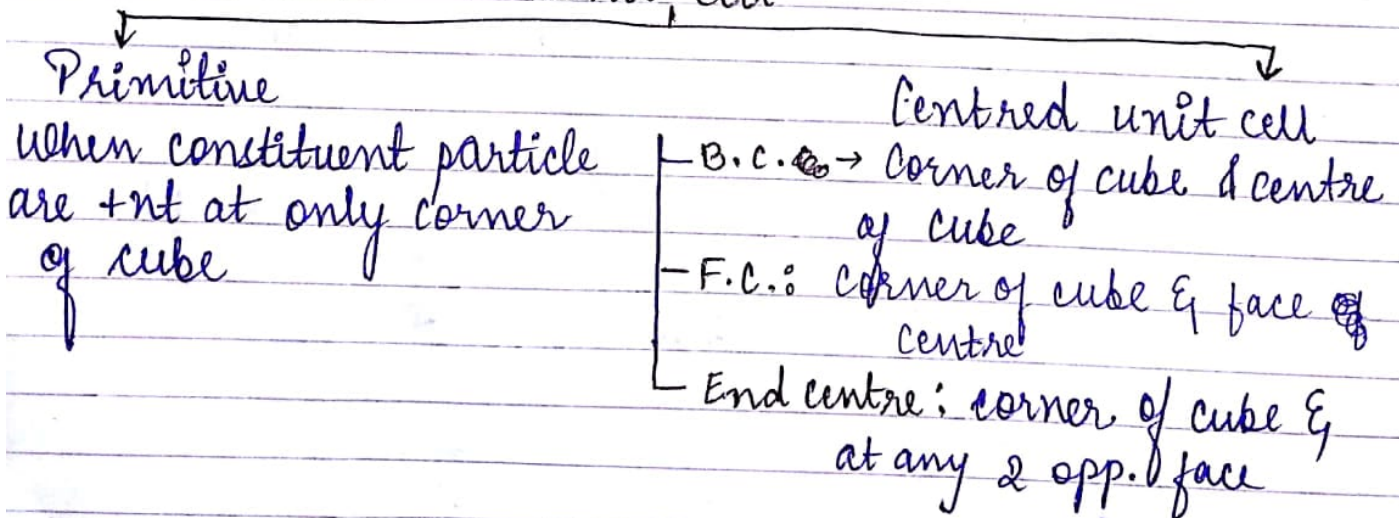 Primitive
when constituent particle
are +nt at only corner
of cube
Centred unit cell
B.C. → Corner of cube & centre
of cube
F.C.: Corner of cube & face
centre
End centre: corner of cube &
at any 2 opp. face